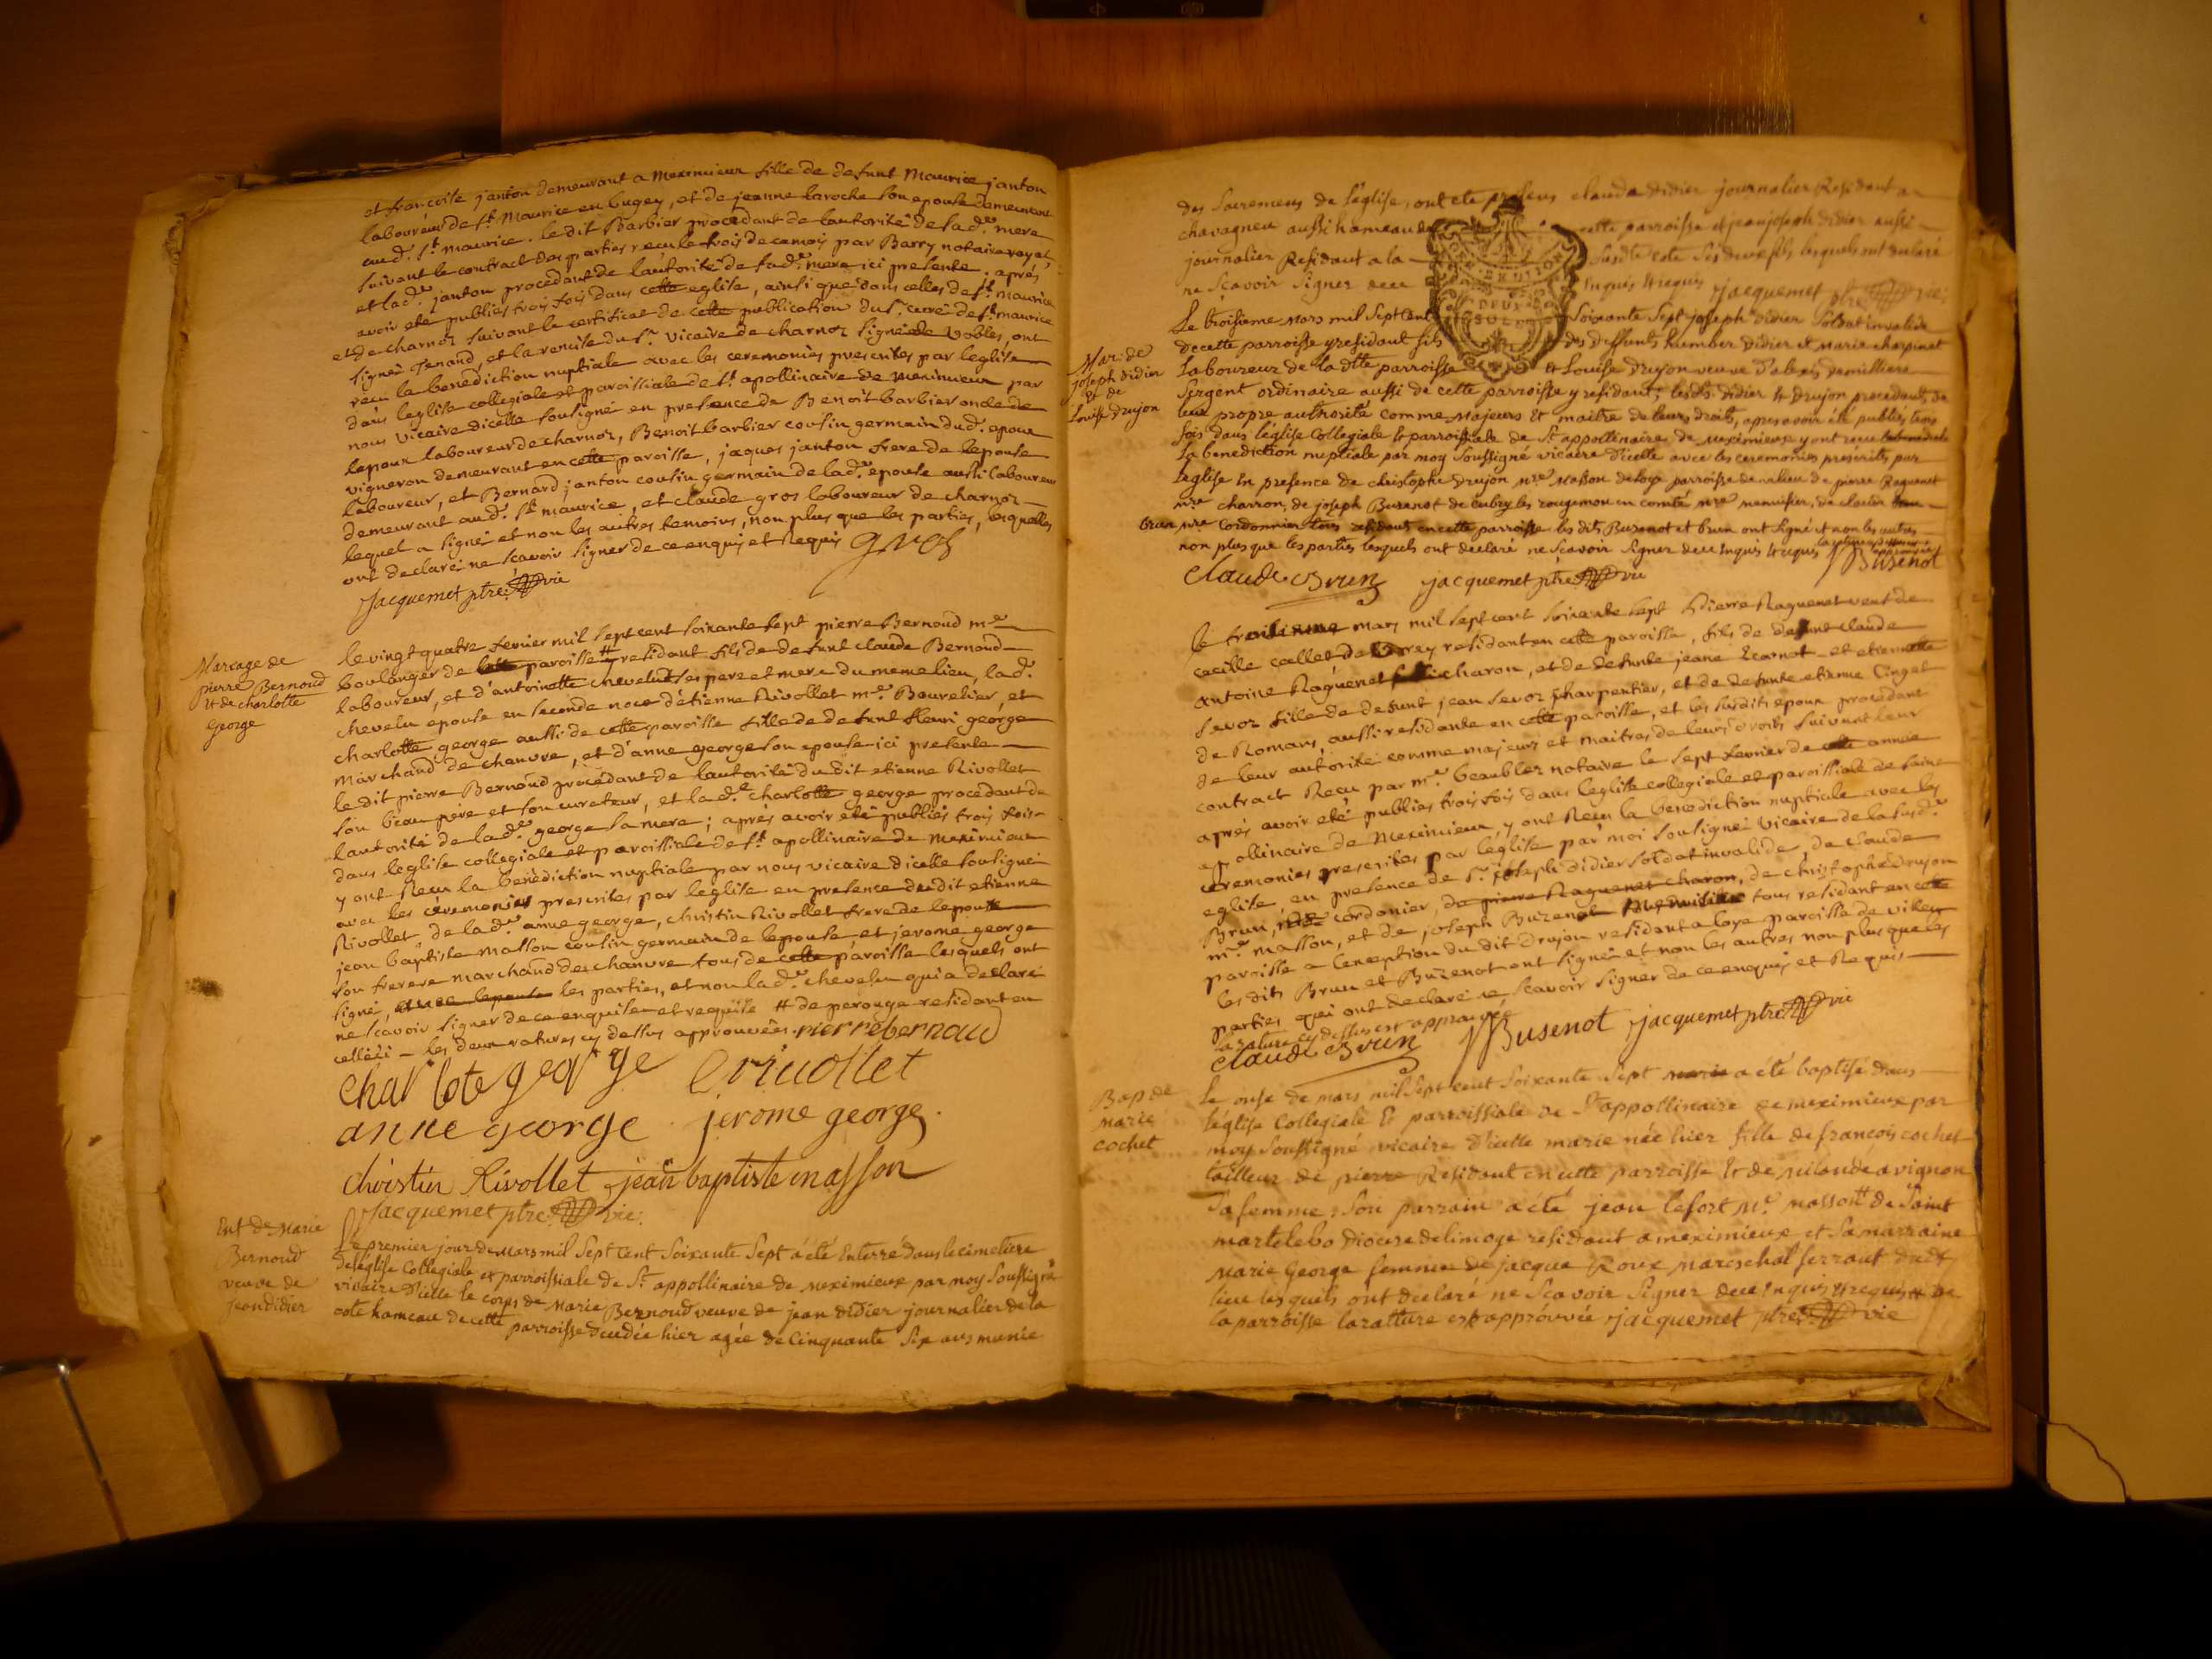 et francoise janton demeurant a Meximieux fille de defunt Maurice janton
laboureur de St. Maurice en bugey, et de jeanne laroche son epouse demeurant
aud. St. maurice. le dit Barbier procedant de lautorité de sad. mere
suivant le contract des parties recu le trois de ce mois par Barry notaire royal,
et lad. janton procedant de lautorité de sad. mere ici presente. aprés
avoir eté publiés trois fois dans cette eglise, ainsi que dans celles de St. maurice
et de charnoz suivant le certificat de cette publication du Sr. curé de St. maurice
signé Tenand, et la remise du Sr. vicaire de charnoz signé de Vobles, ont
recu la benediction nuptiale avec les ceremonies prescrites par leglise
dans leglise collegiale et paroissiale de St. apollinaire de meximieux par
nous vicaire dicelle sousigné en presence de Benoit barbier oncle de
lepoux laboureur de charnoz, Benoit barbier cousin germain dud. epoux
vigneron demeurant en cette paroisse, jaques janton frere de lepouse
laboureur, et Bernard janton cousin germain de lad. epouse aussi laboureur
demeurant aud. St. maurice, et claude gros laboureur de charnoz
lequel a signé et non les autres temoins, non plus que les parties, lesquelles
ont declaré ne scavoir signer de ce enquis et Requis gros
Jacquemet ptre vic
Mareage de
pierre Bernoud
et de charlotte
George
le vingt quatre fevrier mil sept cent soixante sept pierre Bernoud me.
boulanger de paroisse # y residant fils de defunt claude Bernoud
laboureur, et d'antoinette chevelu ses pere et mere du meme lieu, lad.
chevelu epouse en seconde noce d'étienne Rivollet me. Bourelier, et
charlotte george aussi de cette paroisse fille de defunt fleuri george
marchand de chanvre, et d'anne george son epouse ici presente
le dit pierre Bernoud procedant de lautorité du dit etienne Rivollet
son beau pére et son curateur, et lad. charlotte george procedant de
lautorité de lad. george sa mere; aprés avoir eté publiés trois fois
dans leglise collegiale et paroissiale de St. apollinaire de meximieux
y ont Recu la benédiction nuptiale par nous vicaire dicelle sousigné
avec les céremonies prescrites par leglise en presence dudit etienne
Rivollet de lad. anne george, christin Rivollet frere de lepoux
jean baptiste masson cousin germain de lepouse, et jerome george
son frerere marchand de chanvre tous de cette paroisse lesquels ont
signé, avec lepouse les parties, et non lad. chevelu qui a declaré
ne scavoir signer de ce enquise et requise # de perouge residant en
celleci – les deux ratures cy dessus approuvées. pierre bernaud
charlote george E rivollet
anne george jerome george
christin Rivollet jean baptiste masson
Jacquemet ptre vic:
Ent de Marie
Bernoud
veuve de
jean didier
Le premier jour de Mars mil Sept Cent Soixante Sept a été Enterré dans le cimetiere
de l'église Collegiale et parroissiale de St. appollinaire de meximieux par moy Soussigné
vicaire d'icelle le corps de Marie Bernoud veuve de jean didier journalier de la
cote hameau de cette parroisse decedée hier agée de Cinquante Six ans munie
des Sacremens de l'église, ont eté presens claude didier journalier Residant a
chavagneu aussi hameau de cette parroisse et jean joseph didier aussi
journalier Residant a la susdte cote ses deux fils lesquels ont declaré
ne Scavoir Signer dece Inquis et requis jacquemet ptre vic:
Mar. de
joseph didier
et de
Louise drujon
Le troisieme Mars mil Sept Cent Soixante Sept joseph didier Soldat invalide
de cette parroisse y residant fils des deffunts humber didier et marie charpinet
Laboureur de la dtte parroisse et Louise drujon veuve d'alexis demilliere
Sergent ordinaire aussi de cette parroisse y residant; lesdts. didier et drujon procedants de
leur propre authorité comme majeurs et maitre de leurs droits, apres avoir été publiés trois
fois dans l'église Collegiale et parroissiale de St. appollinaire de meximieux y ont reçu
la benediction nuptiale par moy Soussigné vicaire d'icelle avec les ceremonies prescrites par
l'église En presence de christophe drujon Mre Masson de loye parroisse de villieu de pierre Raguenet
mre charron, de joseph Buzenot de cubry les rougemon en comté mre menusier, de claude
brun mre Cordonnier tous residants en cette parroisse les dits Buzenot et brun ont signé et non les autres
non plus que les parties lesquels ont declaré ne Scavoir Signer dece Inquis et requis
Claude Brun jacquemet ptre vic JBusenot
le troisieme mars mil sept cent soixante sept Pierre Raguenet veuf de
cecille collet de residant en cette paroisse, fils de defunt claude
antoine Raguenet charon, et de defunte jeane Ecarnot et etiennette
sevoz fille de defunt jean sevoz charpentier, et de defunte etienne Cinget
de Romans, aussi residante en cette paroisse, et les susdits epoux procedant
de leur autorité comme majeurs et maitres de leurs droits suivant leur
contract Recu par me. beaublez notaire le sept fevrier de cette année
aprés avoir eté publiés trois fois dans leglise collegiale et paroissiale de saint
appollinaire de Meximieux, y ont Recu la benediction nuptiale avec les
ceremonies prescrites par leglise par moi sousigné vicaire de lasusd.
eglise, en presence de Sr. joseph didier soldat invalide, de claude
Brun, cordonier, de pierre Raguenet charon, de christophe drujon
me. masson, et de joseph Buzenot tous residant en cette
paroisse a lexception du dit drujon residant a loye paroisse de vileu
les dits Brun et Buzenot ont signé et non les autres non plus que les
parties qui ont declaré ne scavoir signer de ce enquis et Requis
la rature cy dessus est approuvée
Claude Brun JBusenot jacquemet ptre vic
Bap de
Marie
cochet
Le onse de mars mil Sept cent Soixante Sept marie a été baptisé dans
l'église Collegiale Et parroissiale de St. appollinaire de meximieux par
moy Soussigné vicaire d'icelle marie née hier fille de francois cochet
tailleur de pierre Residant en cette parroisse Et de avignon
Sa femme: Son parrain a été jean lefort Me. Masson # de Saint
martelebo diocese de limoge residant a meximieux et Sa marraine
Marie George femme de jacque Roux Mareschal ferrant dudt
lieu lesquels ont declaré ne Scavoir Signer dece Inquis et requis # de
la parroisse la ratture est approuvée jacquemet ptre vic